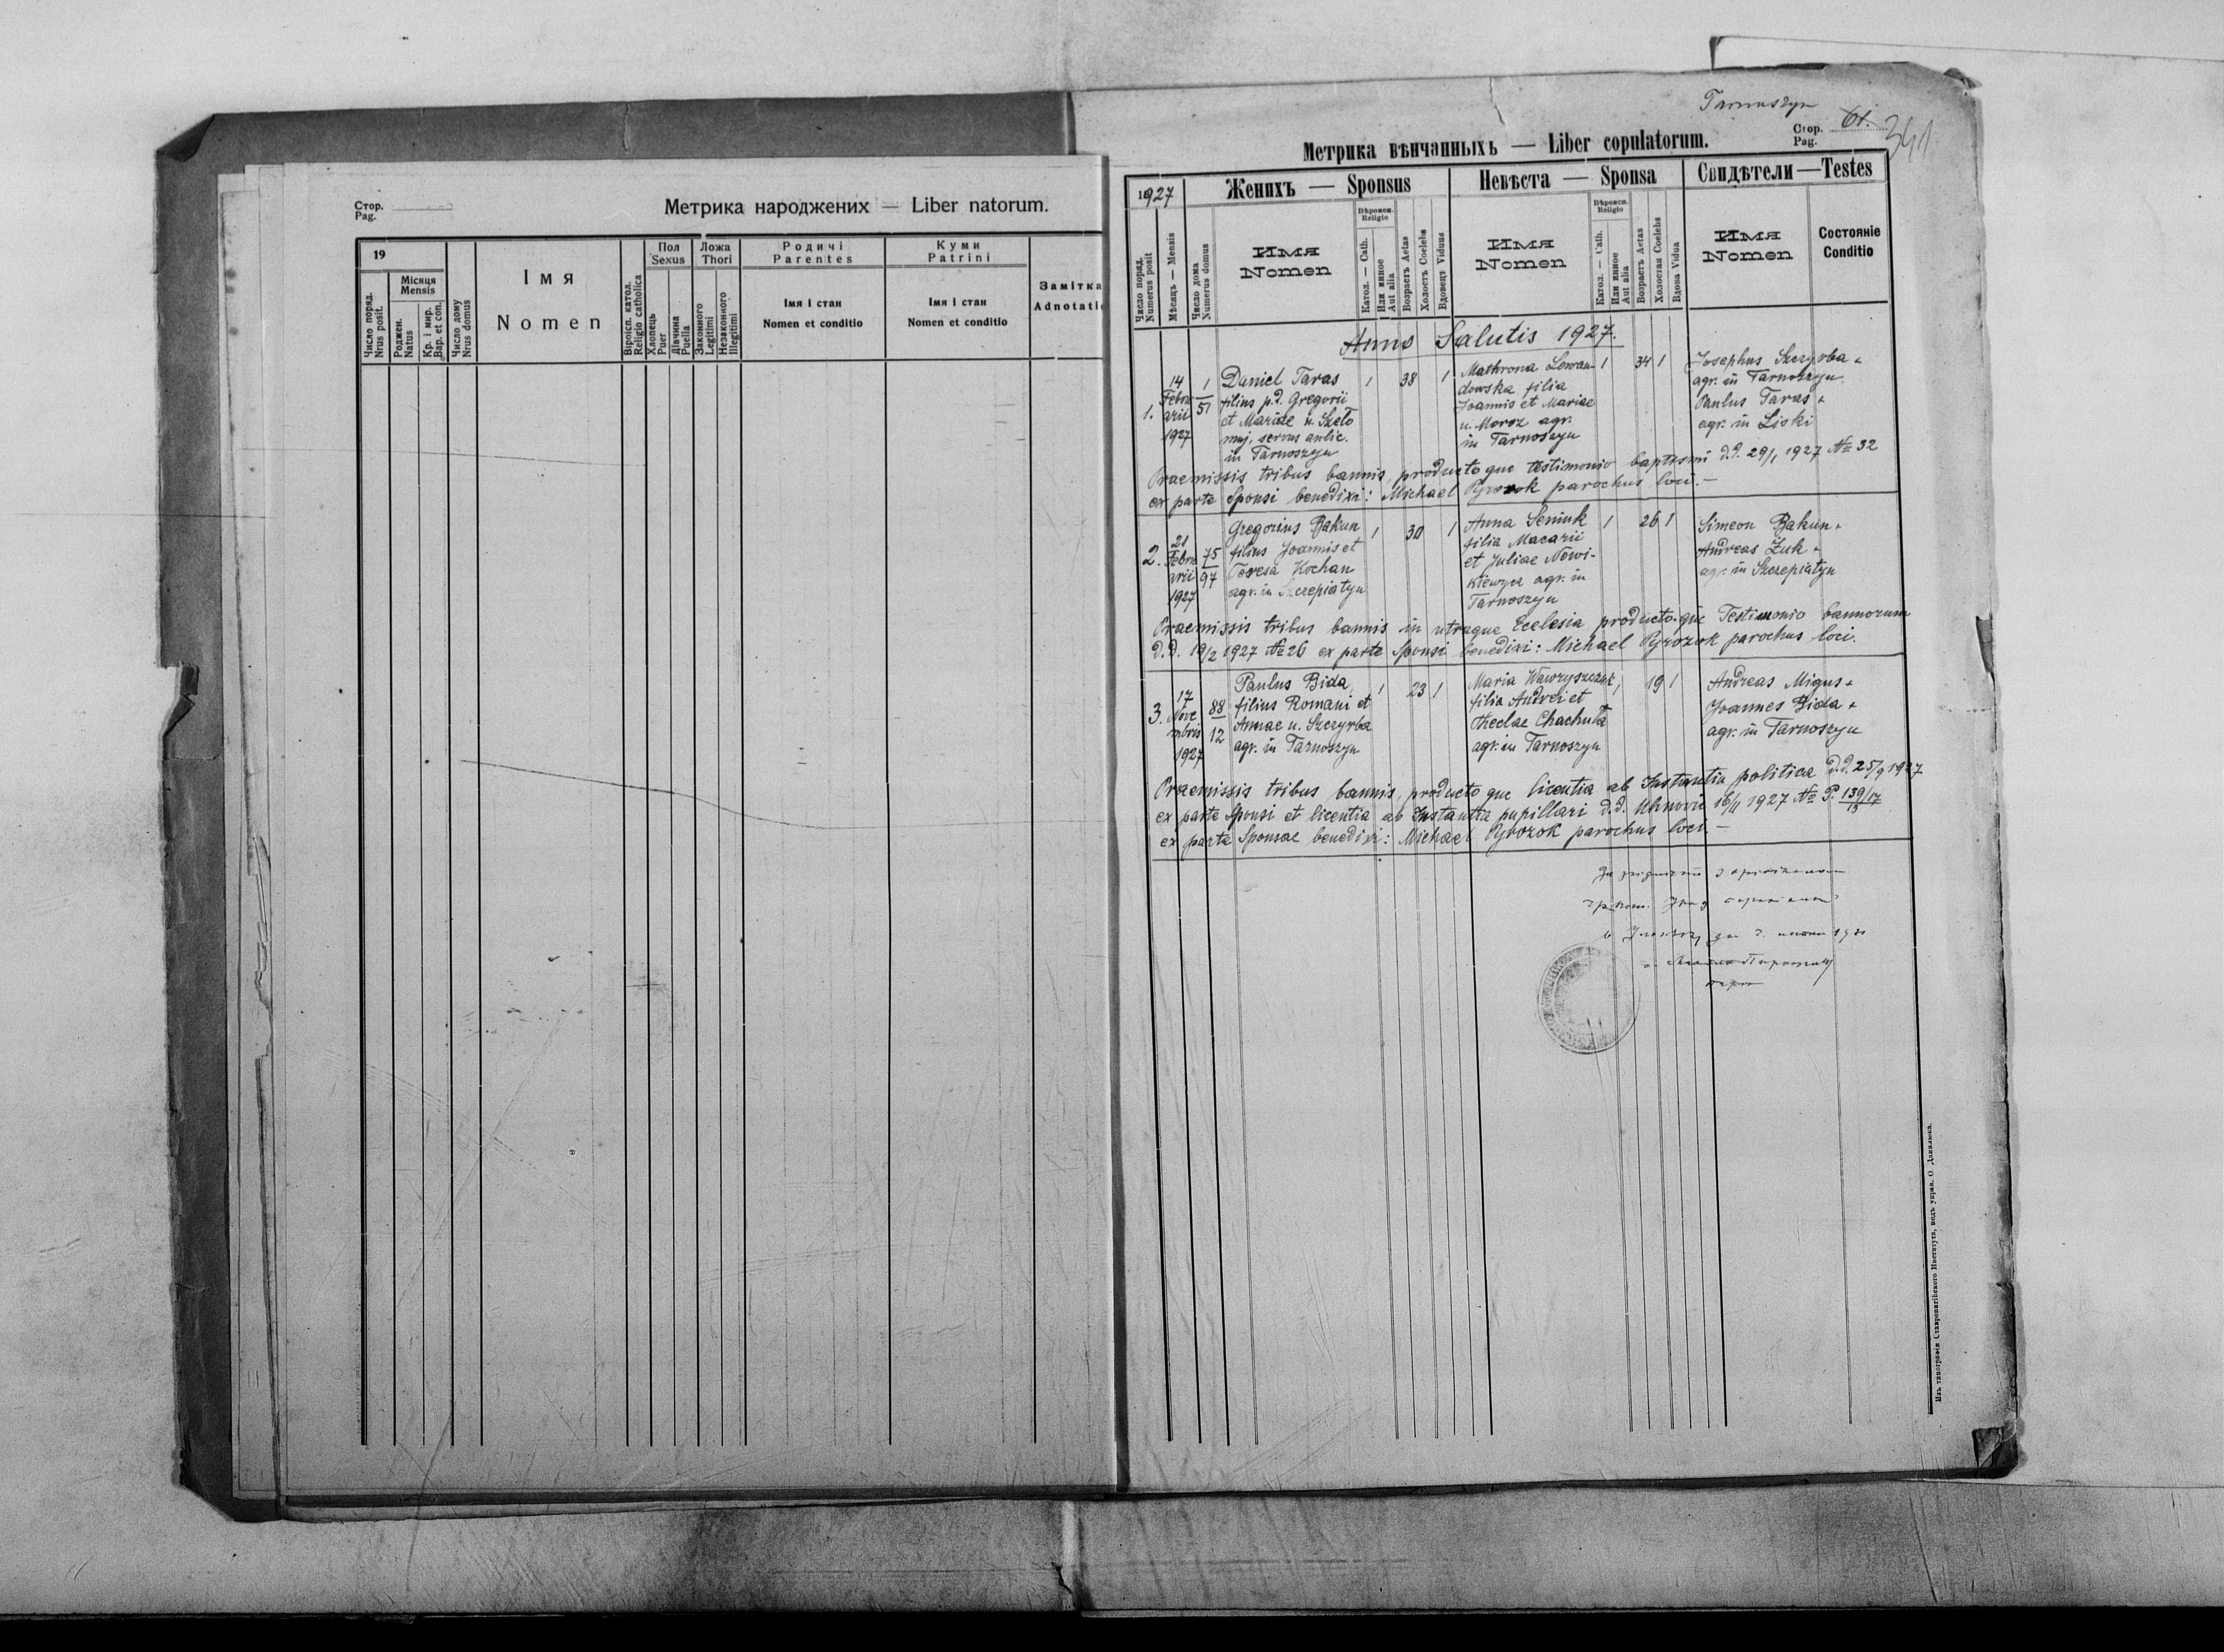 Стор.
Pag.
Метрика народжених — Liber natorum.
19
Число поряд.
Nrus posit.
Місяця
Mensis
Роджен.
Natus
Кр. і мир.
Bap. et con.
Число дому
Nrus domus
Імя
Nomen
Віроісп. катол.
Religio catholica
Пол
Sexus
Хлопець
Puer
Дівчина
Puella
Ложа
Thori
Законного
Legitimi
Незаконного
Illegitimi
Родичі
Parentes
Імя і стан
Nomen et conditio
Куми
Patrini
Імя і стан
Nomen et conditio
Замітка
Adnotatio
Tarnoszyn
Стор.
Pag.
61.
341
Метрика вѣнчанныхъ — Liber copulatorum.
1927
Женихъ — Sponsus
Невѣста — Sponsa
Свидѣтели — Testes
Число поряд.
Numerus posit
Мѣсяцъ — Mensis
Число дома
Numerus domus
Имя
Nomen
Вѣроисп.
Religio
Катол. — Cath.
Или инное
Aut alia
Возрастъ Aetas
Холостъ Coelebs
Вдовецъ Viduus
Имя
Nomen
Вѣроисп.
Religio
Катол. — Cath.
Или инное
Aut alia
Возрастъ Aetas
Холостая Coelebs
Вдова Vidua
Имя
Nomen
Состояніе
Conditio
Anno Salutis 1927.
1.
14
Febru
arii
1927
1
51
Daniel Taras
filius p.d. Gregorii
et Mariae n. Szeło
muj, servus aulic.
in Tarnoszyn
1
38
1
Mathrona Lewan
dowska filia
Joannis et Mariae
n. Moroz agr.
in Tarnoszyn
1
34
1
Josephus Szczyrba +
agr. in Tarnoszyn
Paulus Taras +
agr. in Liski
Praemissis tribus bannis, producto que testimonio baptismi d.d. 29/1 1927 № 32
ex parte Sponsi benedixi: Michael Pyrozok parochus loci. —
2.
21
Febru
arii
1927
75
97
Gregorius Bakun
filius Joannis et
Teresa Kochan
agr. in Szczepiatyn
1
30
1
Anna Seniuk
filia Macarii
et Juliae Nowi-
agr. in
Tarnoszyn
1
26
1
Simeon Bakun +
Andreas Żuk +
agr. in Szczepiatyn
Praemissis tribus bannis in utraque Ecclesia producto-que Testimonio bannorum
d.d. 19/2 1927 № 26 ex parte Sponsi benedixi: Michael Pyrozok parochus loci.
3.
17
Nove
mbris
1927
88
12
Paulus Bida
filius Romani et
Annae n. Szczyrba
agr. in Tarnoszyn
1
23
1
Maria Wawryszczak
filia Andrei et
Theclae Chachuła
agr. in Tarnoszyn
1
19
1
Andreas Migus +
Joannes Bida +
agr. in Tarnoszyn
Praemissis tribus bannis, producto que licentia ab Instantia politica d.d. 25/9 1927
ex parte Sponsi et licentia ab Instantia pupillari d.d. Uhnovie 16/11 1927 № P. 139/17
ex parte Sponsae benedixi: Michael Pyrozok parochus loci. —
Изъ типографіи Ставропигійского Института, подъ управ. О. Данилюка.